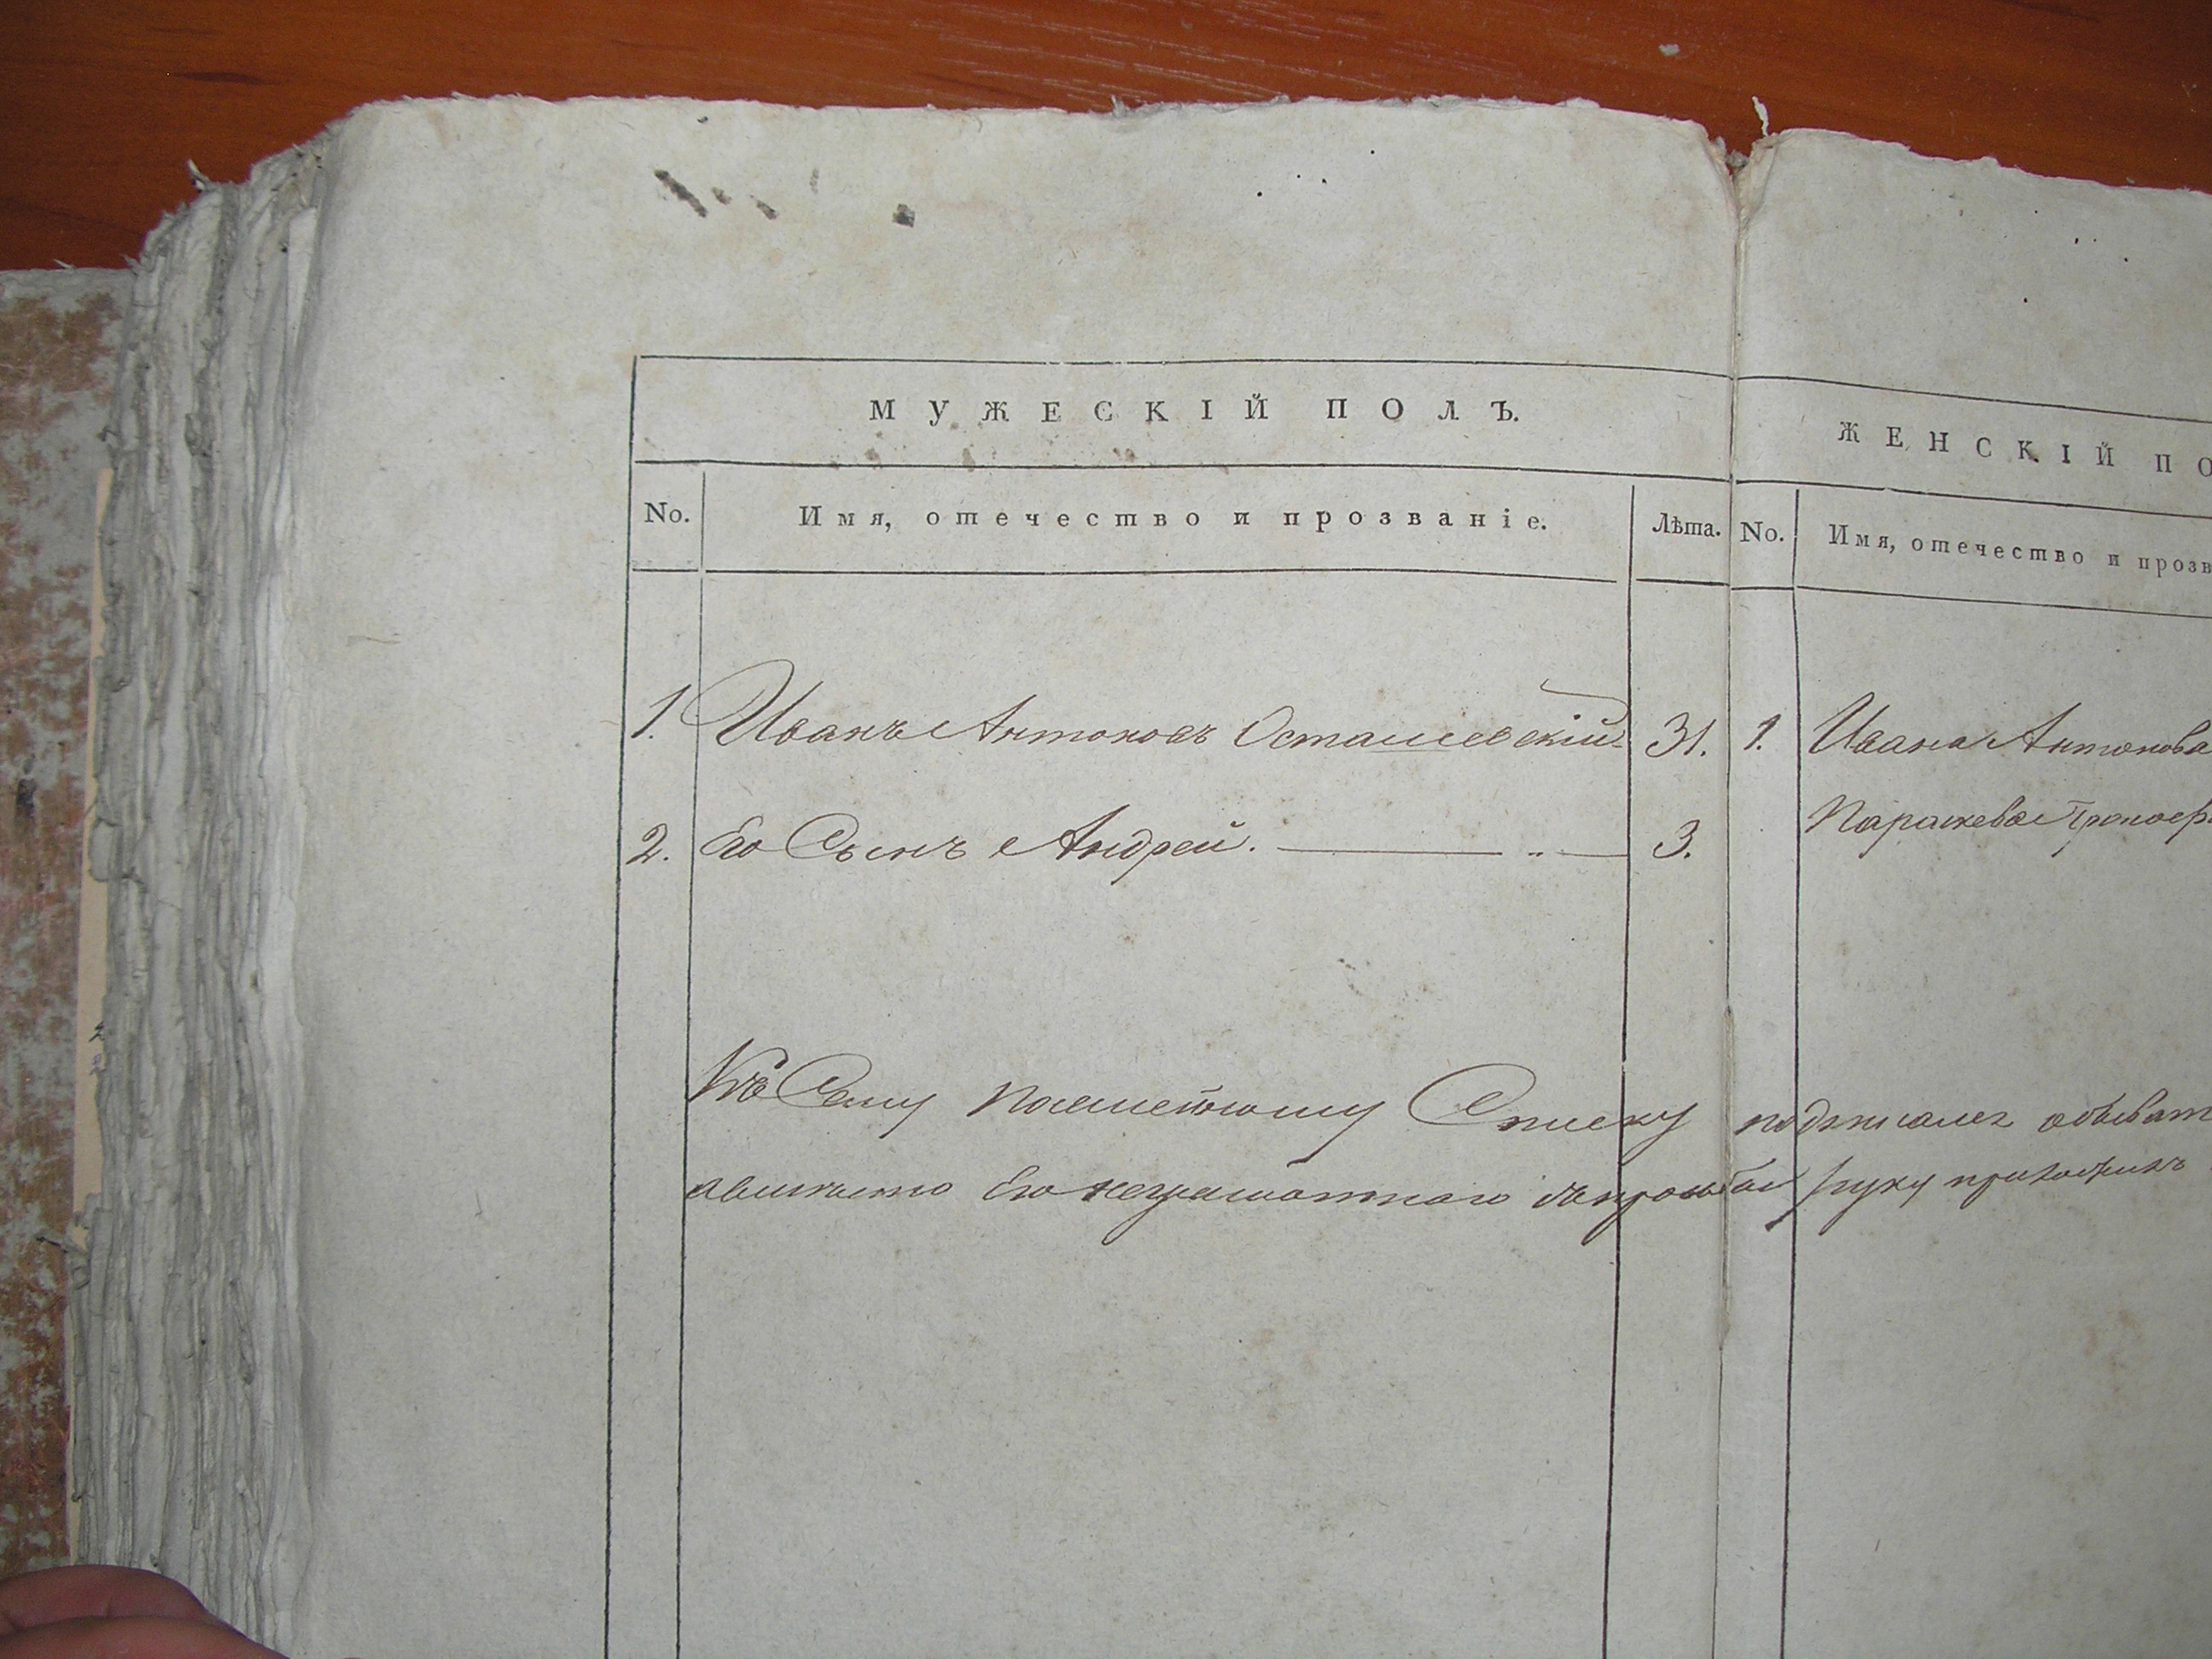 МУЖЕСКІЙ ПОЛЪ.
ЖЕНСКІЙ ПО
No. Имя, отечество и прозваніе. Лѣта. No. Имя, отечество и прозв
1. Иванъ Антоновъ Осташевскій 31. 1. Ивана Антонова
2. Его Сынъ Андрей. 3. Параскева
Къ Сему Посемейному Списку подписался обыват
Его неграмотнаго запрозбою руку приложилъ